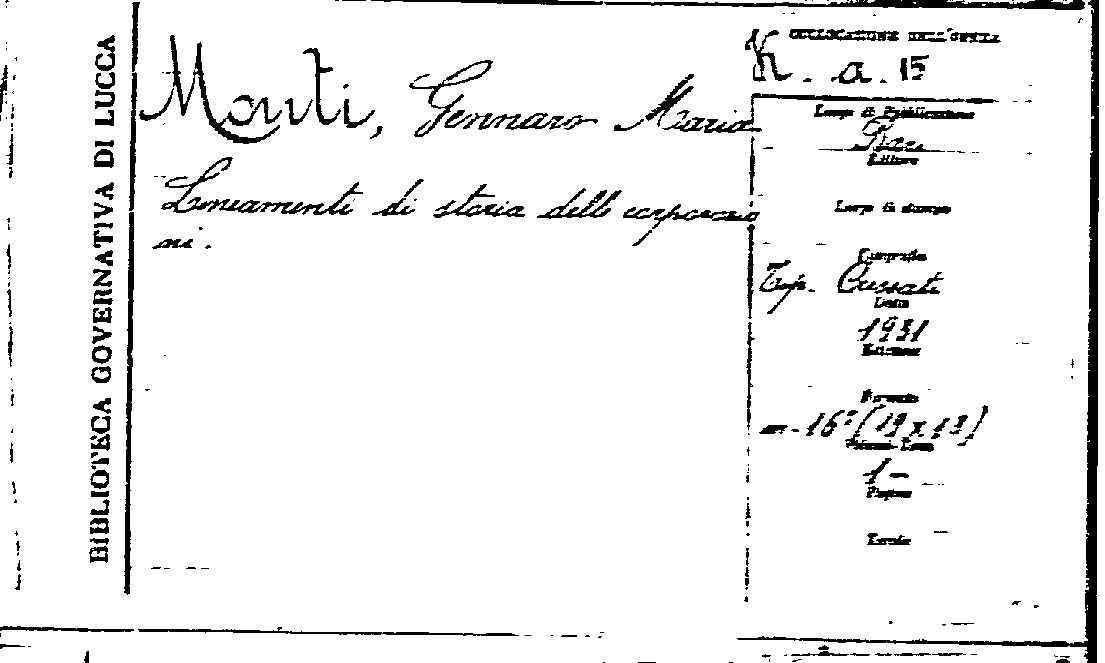 BIBLIOTECA GOVERNATIVA DI LUCCA
Monti, Gennaro Maria
Lineamenti di storia delle corporazio
ni.
COLLOCAZIONE DELL'OPERA
K. a. 15
Luogo di Pubblicazione
Bari
Editore
Luogo di stampa
Tip. Cressati
Data
1931
Edizione
Formato
in-16° (19x13)
1-
Pagine